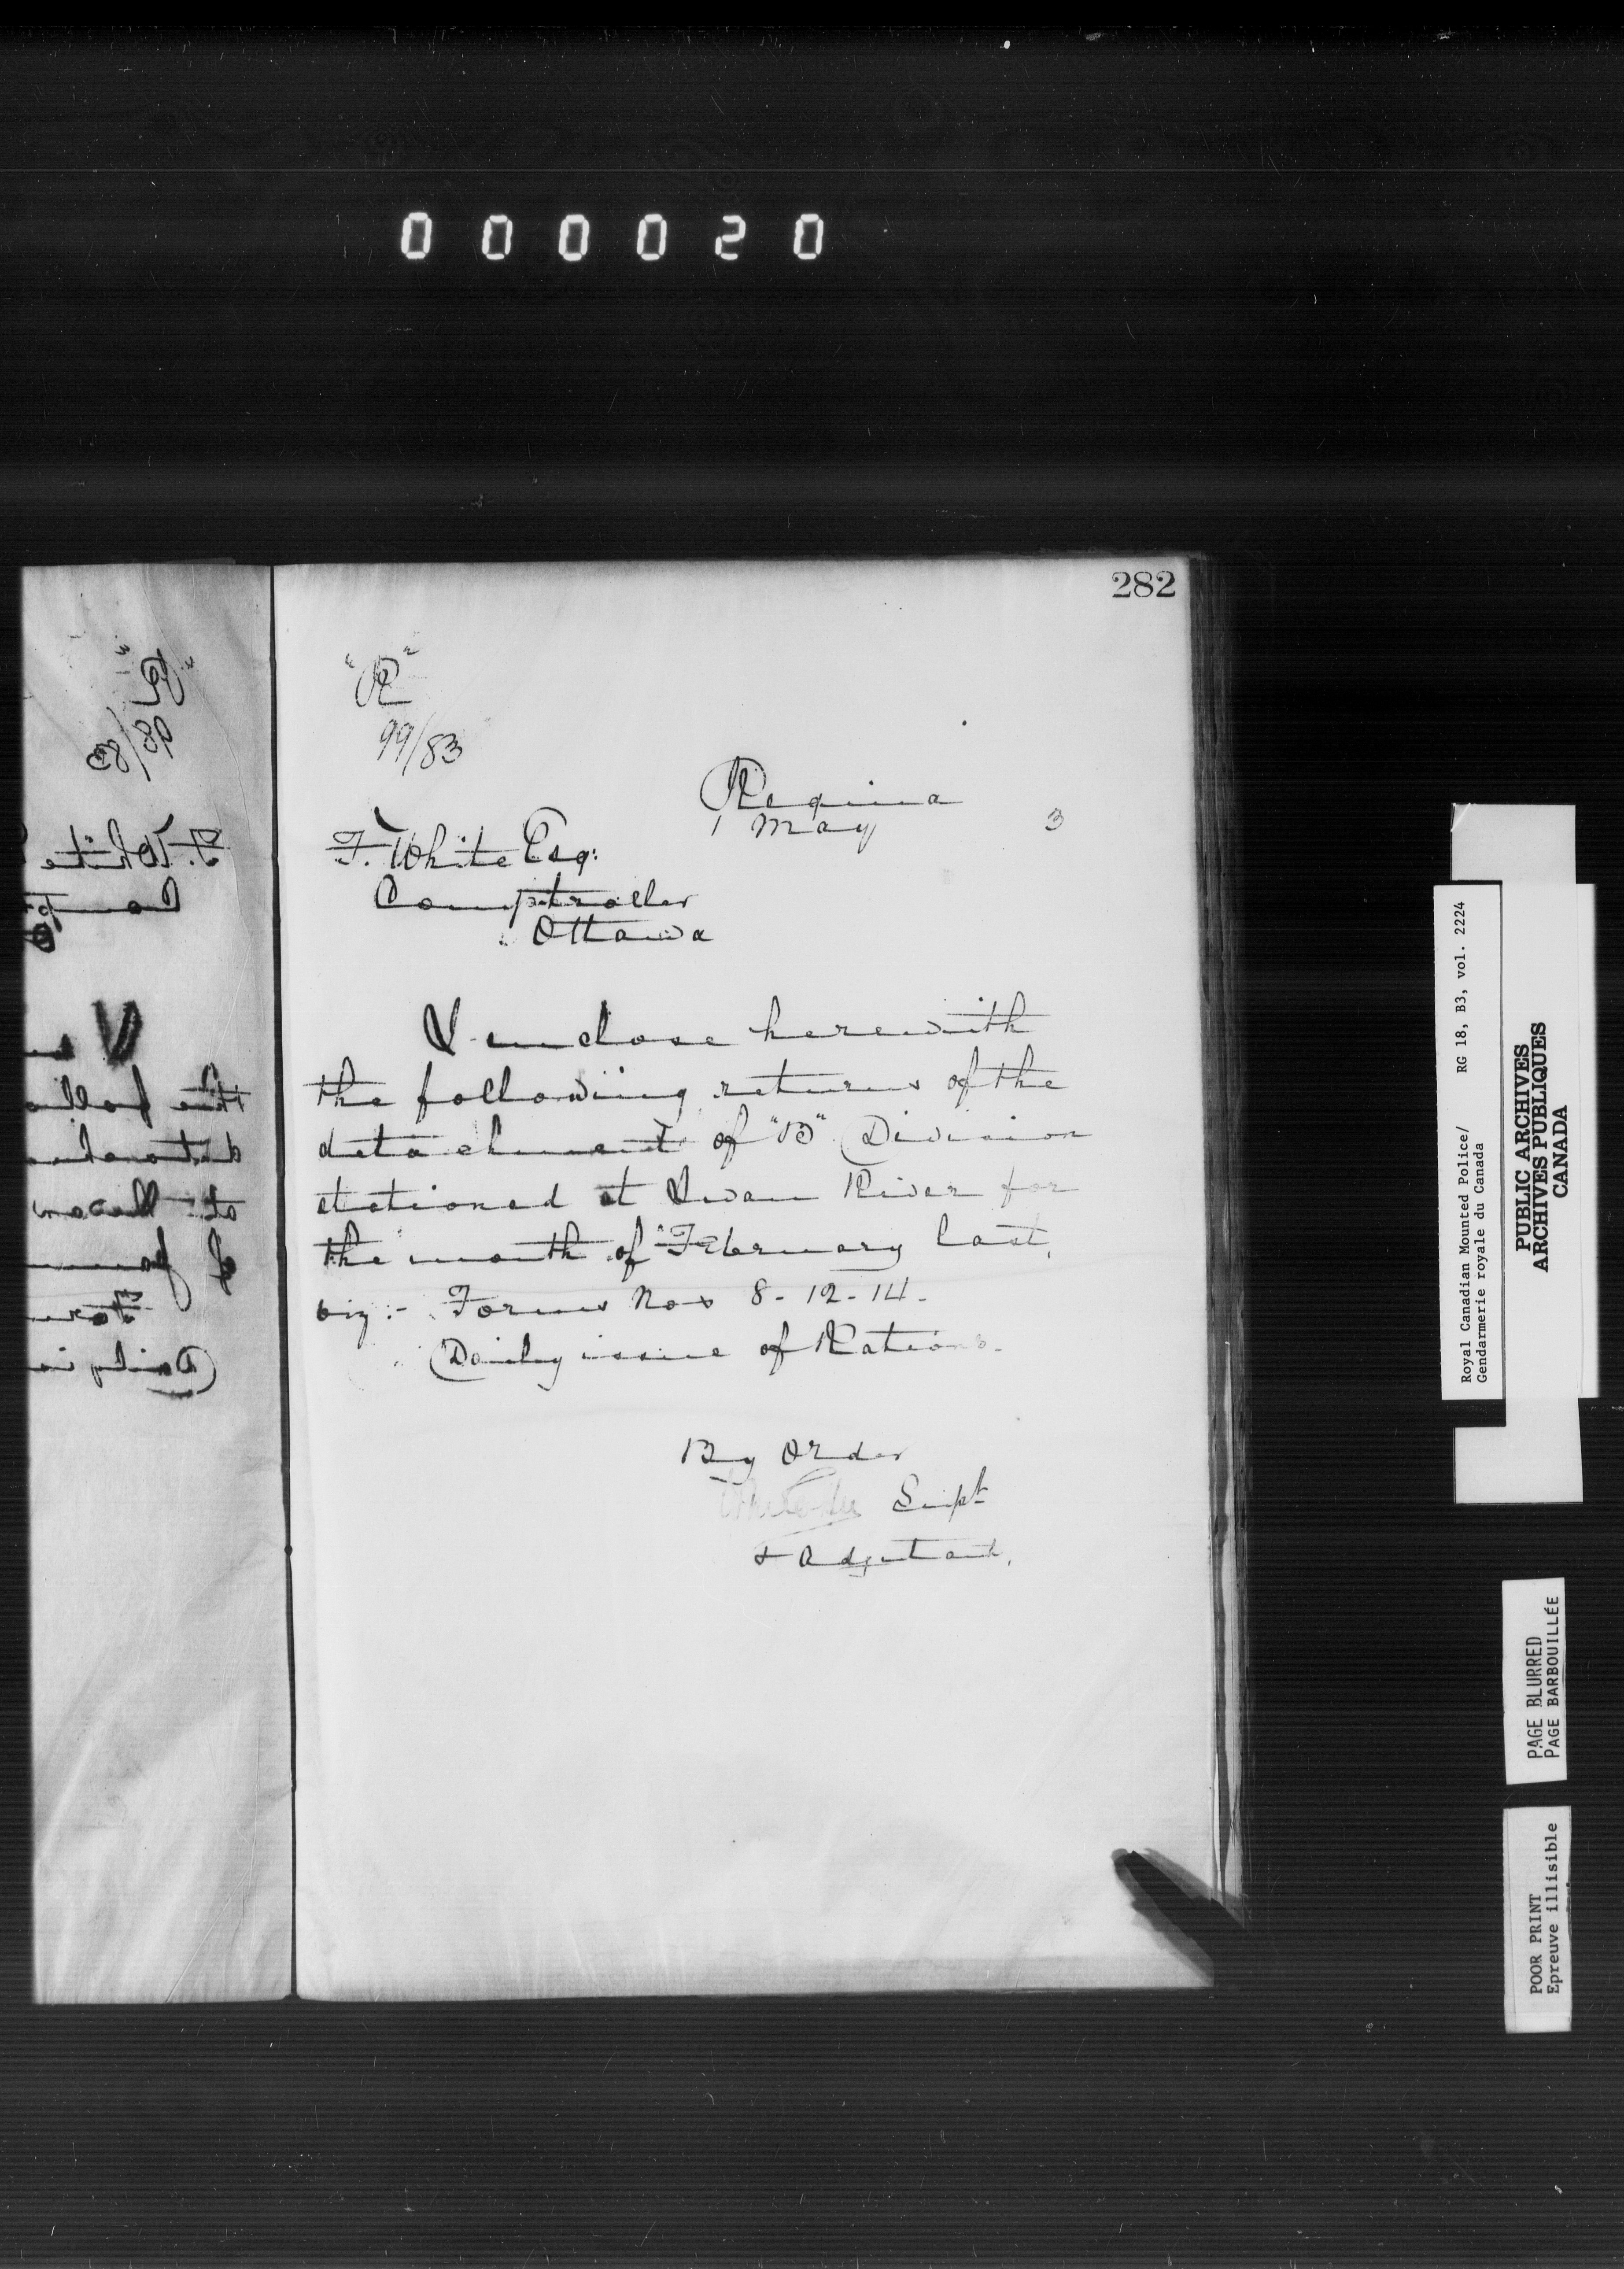 000020
282
"R"
99/83
Regina
1 May 3
F. White Esq:
Comptroller
Ottawa
I enclose herewith
the following returns of the
detachment of "B" Division
stationed at Swan River for
the month of February last,
viz:- Forms Nos 8-12-14-
Daily issue of Rations.
By Order
Supt
& Adjutant.
"R"
98/83
F. White
Comp
the follo
detache
at
of
Form
Daily is
Royal Canadian Mounted Police/ RG 18, B3, vol. 2224
Gendarmerie royale du Canada
PUBLIC ARCHIVES
ARCHIVES PUBLIQUES
CANADA
PAGE BLURRED
PAGE BARBOUILLÉE
POOR PRINT
Epreuve illisible